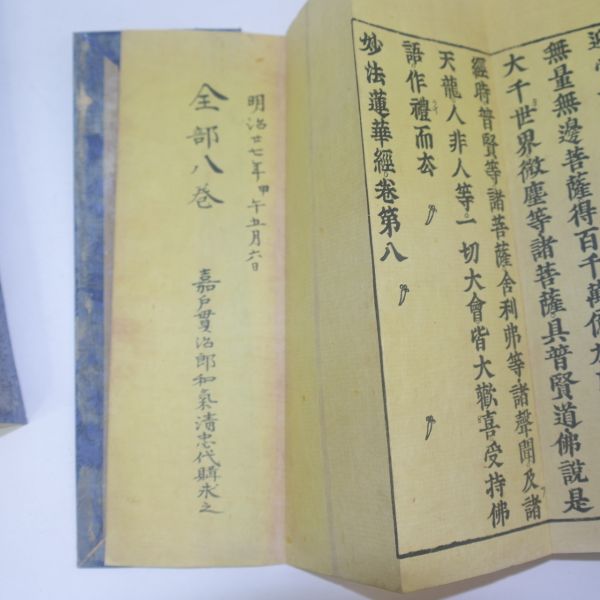 無量無邊菩薩得百千萬億
大千世界微塵等諸菩薩具普賢道佛說是
經時普賢等諸菩薩舍利弗等諸聲聞及諸
天龍人非人等一切大會皆大歡喜受持佛
語作禮而去
妙法蓮華經卷第八
明治廿七年甲午五月六日
全部八巻
嘉戸貫治郎和氣清忠代購求之